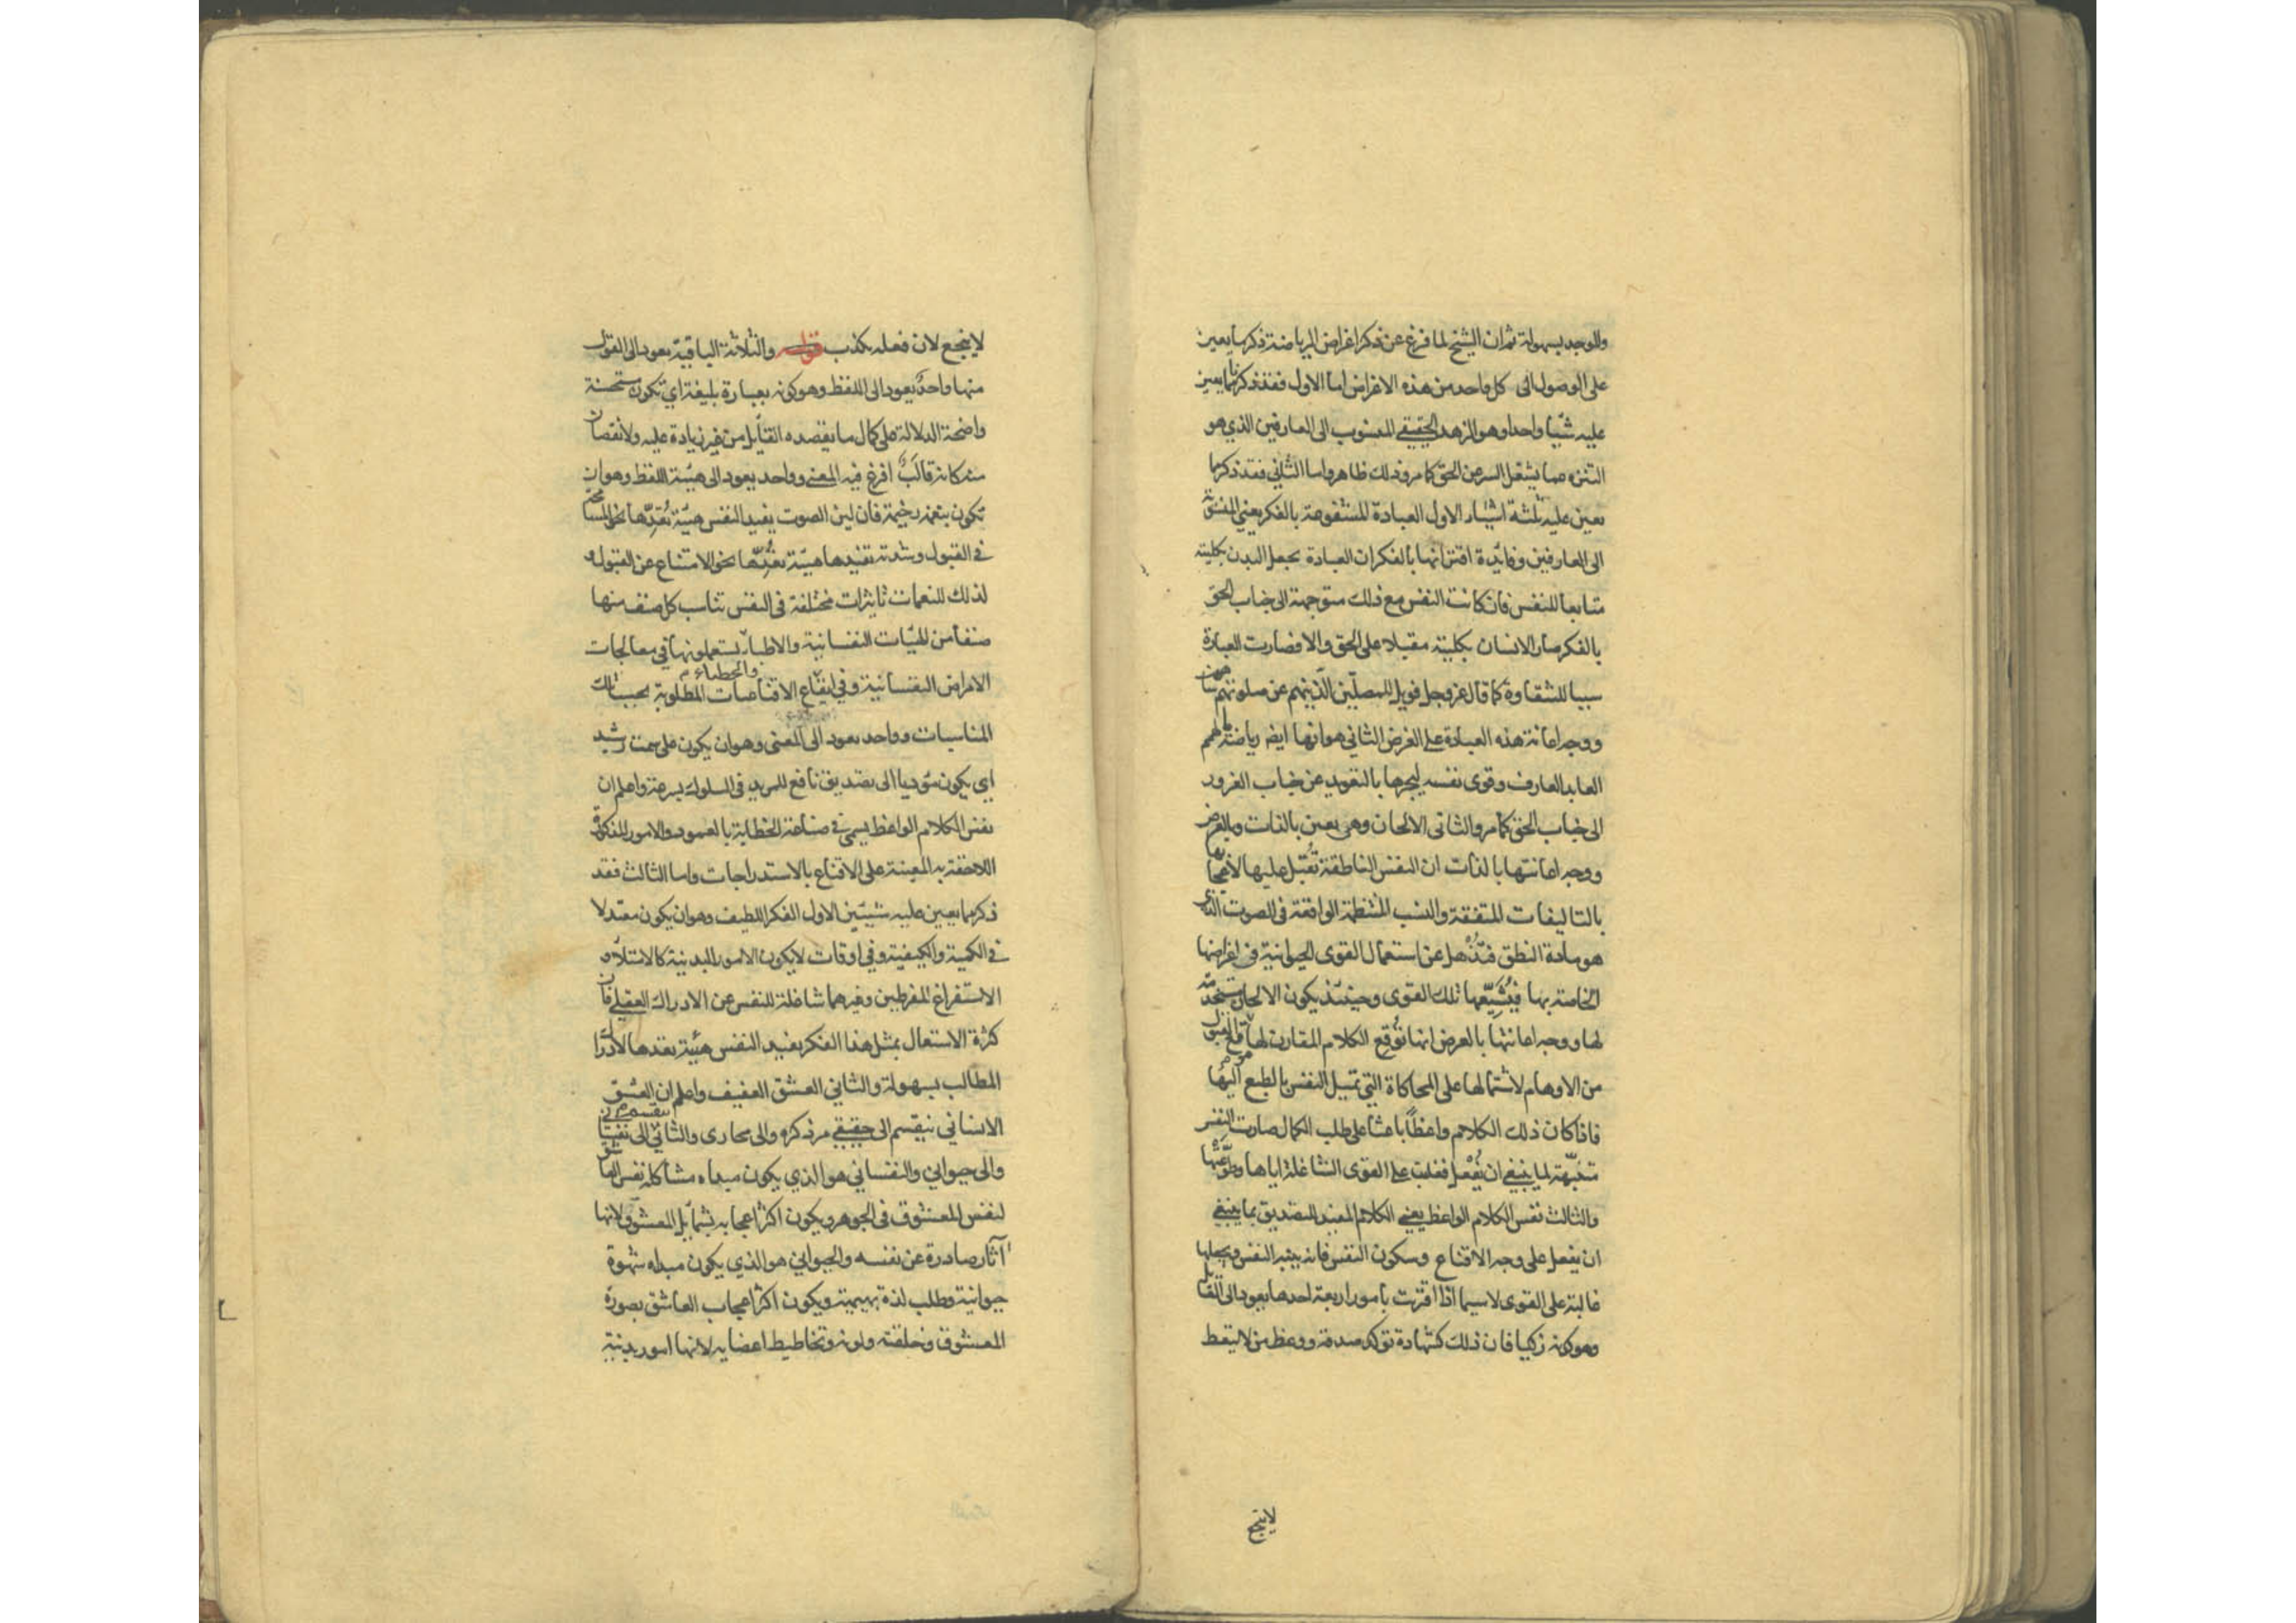 وللوجد بسهولة ثم ان الشيخ لما فرغ عن ذكر اغراض الرياضة ذكر ما يعين
على الوصول الى كل واحد من هذه الاغراض اما الاول فقد ذكر مما يعين
عليه شيئا واحدا وهو الزهد الحقيقي المنسوب الى العارفين الذي هو
التنزه عما يشغل السر عن الحق كما مر وذلك ظاهر واما الثاني فقد ذكر مما
يعين عليه ثلثة اشياء الاول العبادة المشفوعة بالفكر يعني المنسوبة
الى العارفين وفائدة اقترانها بالفكر ان العبادة تجعل البدن بكليته
متابعا للنفس فان كانت النفس مع ذلك متوجهة الى جناب الحق
بالفكر صار الانسان بكليته مقبلا على الحق والا فصارت العبادة
سببا للشقاوة كما قال عز وجل فويل للمصلين الذين هم عن صلوتهم ساهون
ووجه اعانة هذه العبادة على الغرض الثاني هو انها ايضا رياضة ما لهمم
العابد العارف وقوى نفسه ليجرها بالتعويد عن جناب الغرور
الى جناب الحق كما مر والثاني الالحان وهي يعين بالذات وبالعرض
ووجه اعانتها بالذات ان النفس الناطقة تُقبل عليها لاعجابها
بالتاليفات المتفقة والنسب المنتظمة الواقعة في الصوت الذي
هو مادة النطق فتذهل عن استعمال القوى الحيوانية في اغراضها
الخاصة بها فيُشيّعها تلك القوى وحينئذ يكون الالحان مستخدمة
لها ووجه اعانتها بالعرض انها تُوقع الكلام المقارن لها موقع القبول
من الاوهام لاشتمالها على المحاكاة التي تميل النفس بالطبع اليها
فاذا كان ذلك الكلام واعظًا باعثا على طلب الكمال صارت النفس
متنبّهة لما ينبغي ان يُفعل فغلبت على القوى الشاغلة اياها وطوّعتها
والثالث نفس الكلام الواعظ يعني الكلام المفيد للتصديق بما ينبغي
ان يفعل على وجه الاقناع وسكون النفس فانه ينبه النفس ويجعلها
غالبة على القوى لاسيما اذا اقترنت بامور اربعة احدها يعود الى القائل
وهو كونه زكيا فان ذلك كشهادة تؤكد صدقه ووعظ من لا يتعظ
لا ينجع
لا ينجع لان فعله يكذب قوله والثلاثة الباقية يعود الى القول
منها واحدٌ يعود الى اللفظ وهو كونه بعبارة بليغة اي تكون مستحسنة
واضحة الدلالة على كمال ما يقصده القائل من غير زيادة عليه ولا نقصان
منه كانه قالَبٌ افرغ فيه المعنى وواحد يعود الى هيئة اللفظ وهو ان
تكون بنغمة رخيمة فان لين الصوت يفيد النفس هيئة تُعِدّها نحو المسامحة
في القبول وشدته تفيدها هيئة تُعِدّها نحو الامتناع عن القبول و
لذلك للنغمات تاثيرات مختلفة في النفس تناسب كل صنف منها
صنفا من الهيئات النفسانية والاطباء يستعملونها في معالجات
الامراض النفسانية والخطباء في ايقاع الاقناعات المطلوبة بحسب تلك
المناسبات وواحد يعود الى المعنى وهو ان يكون على سمت رشيد
اي يكون مؤديا الى تصديق نافع للمريد في السلوك بسرعة واعلم ان
نفس الكلام الواعظ يسمى في صناعة الخطابة بالعمود والامور المذكورة
اللاحقة به المعينة على الاقناع بالاستدراجات واما الثالث فقد
ذكر مما يعين عليه شيئين الاول الفكر اللطيف وهو ان يكون معتدلا
في الكمية والكيفية وفي اوقات لا يكون الامور البدنية كالامتلاء و
الاستفراغ المفرطين وغيرهما شاغلة للنفس عن الادراك العقلي فان
كثرة الاستعمال بمثل هذا الفكر يفيد النفس هيئة تعدها لادراك
المطالب بسهولة والثاني العشق العفيف واعلم ان العشق
الانساني ينقسم الى حقيقي مر ذكره والى مجازى والثاني ينقسم الى نفساني
والى حيواني والنفساني هو الذي يكون مبداه مشاكلة نفس العاشق
لنفس المعشوق في الجوهر ويكون اكثر اعجابه بشمائل المعشوق لانها
آثار صادرة عن نفسه والحيواني هو الذي يكون مبداه شهوة
حيوانية وطلب لذة بهيمية ويكون اكثر اعجاب العاشق بصورة
المعشوق وخلقته ولونه وتخاطيط اعضائه لانها امور بدنية